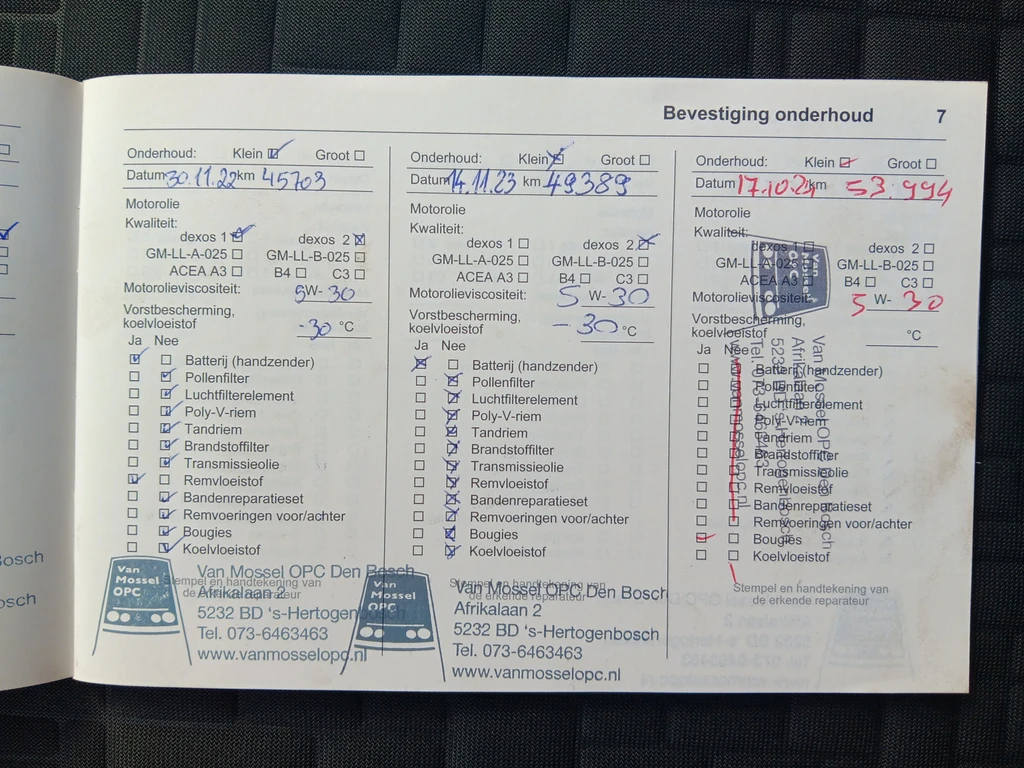 Bevestiging onderhoud 7
Onderhoud: Klein Groot
Datum 30.11.22 km 45703
Motorolie
Kwaliteit:
dexos 1 dexos 2
GM-LL-A-025 GM-LL-B-025
ACEA A3 B4 C3
Motorolieviscositeit: 5W-30
Vorstbescherming,
koelvloeistof -30 °C
Ja Nee
Batterij (handzender)
Pollenfilter
Luchtfilterelement
Poly-V-riem
Tandriem
Brandstoffilter
Transmissieolie
Remvloeistof
Bandenreparatieset
Remvoeringen voor/achter
Bougies
Koelvloeistof
Stempel en handtekening van
de erkende reparateur
Van
Mossel
OPC
Van Mossel OPC Den Bosch
Afrikalaan 2
5232 BD 's-Hertogenbosch
Tel. 073-6463463
www.vanmosselopc.nl
Onderhoud: Klein Groot
Datum 14.11.23 km 49389
Motorolie
Kwaliteit:
dexos 1 dexos 2
GM-LL-A-025 GM-LL-B-025
ACEA A3 B4 C3
Motorolieviscositeit: 5W-30
Vorstbescherming,
koelvloeistof -30 °C
Ja Nee
Batterij (handzender)
Pollenfilter
Luchtfilterelement
Poly-V-riem
Tandriem
Brandstoffilter
Transmissieolie
Remvloeistof
Bandenreparatieset
Remvoeringen voor/achter
Bougies
Koelvloeistof
Stempel en handtekening van
de erkende reparateur
Van
Mossel
OPC
Van Mossel OPC Den Bosch
Afrikalaan 2
5232 BD 's-Hertogenbosch
Tel. 073-6463463
www.vanmosselopc.nl
Onderhoud: Klein Groot
Datum 17.10.24 km 53.994
Motorolie
Kwaliteit:
dexos 1 dexos 2
GM-LL-A-025 GM-LL-B-025
ACEA A3 B4 C3
Motorolieviscositeit: 5 W- 30
Vorstbescherming,
koelvloeistof °C
Ja Nee
Batterij (handzender)
Pollenfilter
Luchtfilterelement
Poly-V-riem
Tandriem
Brandstoffilter
Transmissieolie
Remvloeistof
Bandenreparatieset
Remvoeringen voor/achter
Bougies
Koelvloeistof
Stempel en handtekening van
de erkende reparateur
Van
Mossel
OPC
Van Mossel OPC Den Bosch
Afrikalaan 2
5232 BD 's-Hertogenbosch
Tel. 073-6463463
www.vanmosselopc.nl
Bosch
osch